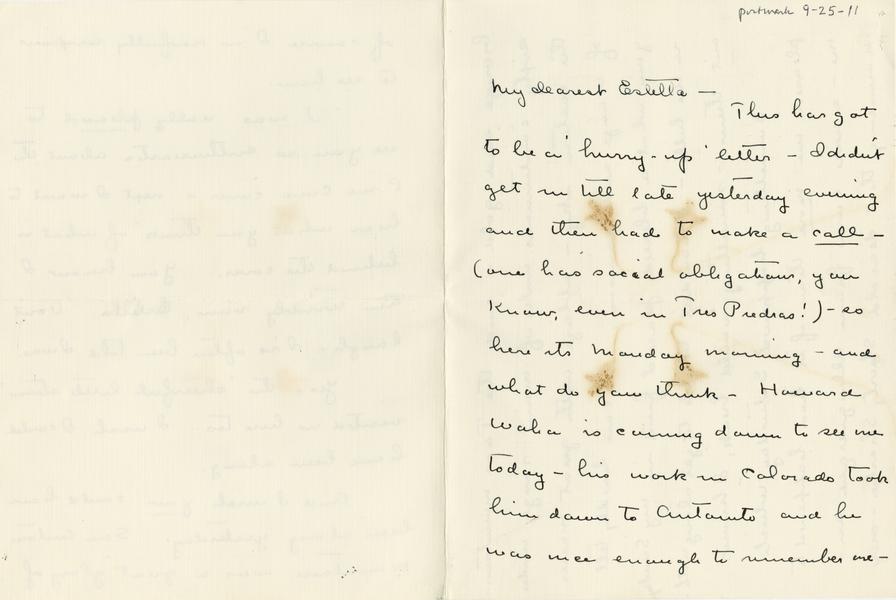 postmark 9-25-11
My dearest Estella —
This has got
to be a 'hurry-up' letter — I didn't
get in till late yesterday evening
and then had to make a call —
(one has social obligations, you
know, even in Tres Piedras!) — so
here its Monday morning — and
what do you think — Howard
is coming down to see me
today — his work in Colorado took
him down to Antonito and he
was nice enough to remember me —